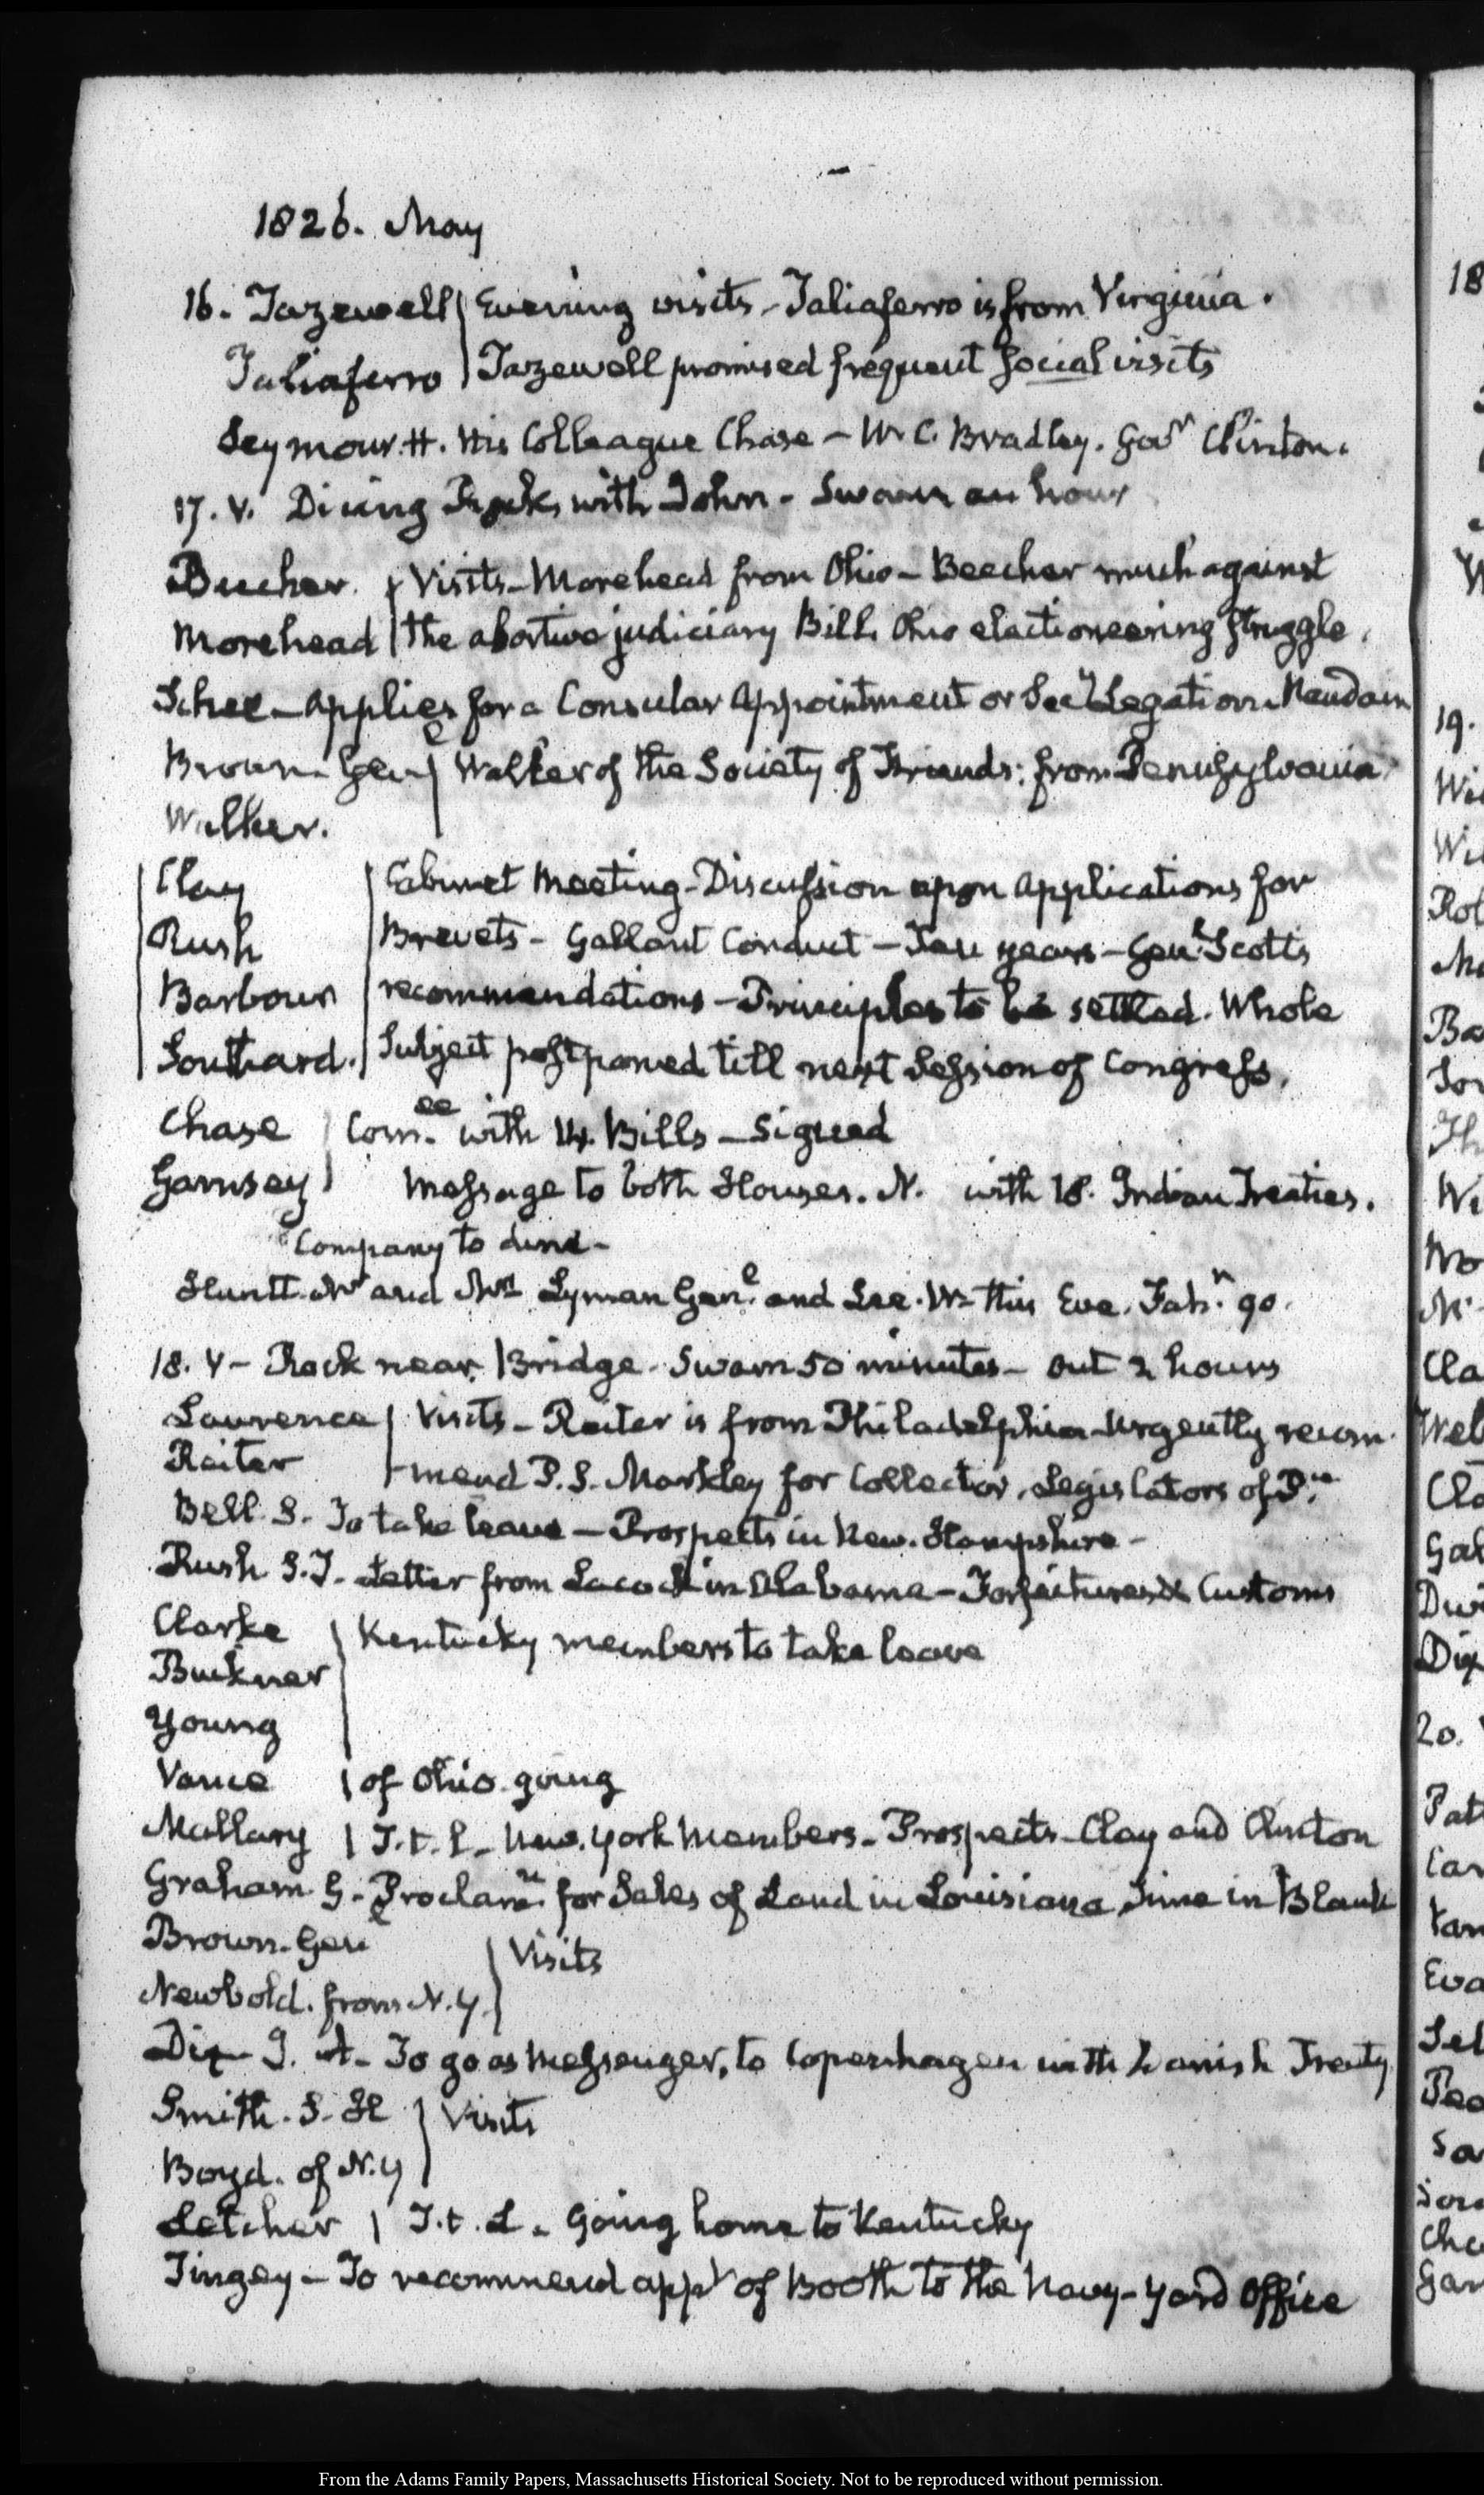 1826. May
16. Tazewell | Evening visits - Taliaferro is from Virginia.
Taliaferro | Tazewell promised frequent social visits
Seymour. H. His Colleague Chase - W. C. Bradley. Govr Clinton.
17. V. Diving Rock, with John - Swam an hour
Beecher. | Visits - Morehead from Ohio - Beecher much against
Morehead | the abortive judiciary Bill. Ohio electioneering struggle.
applies for a Consular Appointment or Secy Legation. Naudain
Brown. Genl | Walker of the Society of Friends: from Pennsylvania
Walker.
Clay | Cabinet Meeting - Discussion upon applications for
Rush | Brevets - Gallant Conduct - Ten years - Genl Scott's
Barbour | recommendations - Principles to be settled. Whole
Southard. | Subject postponed till next Session of Congress.
Chase | Comee. with 14. Bills - Signed
Garnsey | Message to both Houses. N. with 18. Indian Treaties.
Company to dine -
Huntt. Dr and Mrs Lyman Genl. and this Eve. go.
18. V - Rock near Bridge. Swam 50 minutes - out 2 hours
Lawrence | Visits - Reiter is from Philadelphia - Urgently recom-
Reiter | mend P. S. Markley for Collector. Legislators of Pa.
Bell. S. To take leave - Prospects in New. Hampshire -
Rush. Letter from Lacock in Alabama - Forfeitures & Customs
Clarke | Kentucky members to take leave
Buckner
Young
Vance | of Ohio. going
Mallary | T. t. l - New. York Members - Prospects - Clay and Clinton
Graham G. Proclamn. for Sales of Land in Louisiana, Time in Blank
Brown. Genl | Visits
Newbold. from N. Y.
Dix J. A. To go as Messenger, to Copenhagen with Danish Treaty
Smith. S. H | Visits
Boyd. of N. Y
Letcher | T. t. L. Going home to Kentucky
Tingey - To recommend appt of Booth to the Navy-yard Office
18
19.
Wi
Wi
Rol
Mo
Ba
Sou
Th
Wi
Mo
Cla
Web
Cla
Gal
Dwi
Dix
20.
Pat
Car
Van
Eva
Sel
Pea
Sa
Sou
Cha
Gar
From the Adams Family Papers, Massachusetts Historical Society. Not to be reproduced without permission.